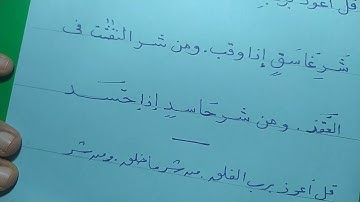 قل أعوذ برب
شَرِ غَاسَقٍ إذا وقب . ومن شر النفّٰثٰت فى
العُقَد . ومن شر حَاسدٍ إذا حَسَد
قل أعوذ برب الفلق . من شر ما خلق . ومن شر